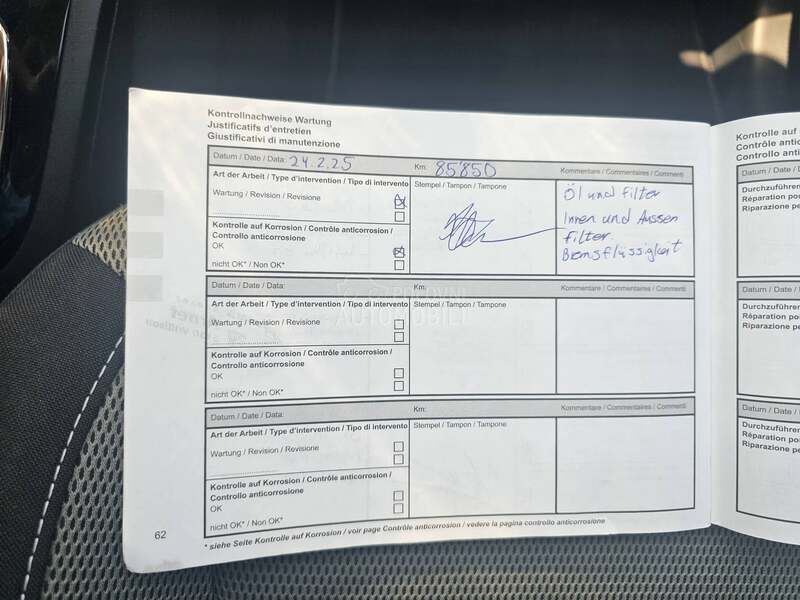 Kontrollnachweise Wartung
Justificatifs d'entretien
Giustificativi di manutenzione
Datum / Date / Data: 24.2.25 Km: 85'850 Kommentare / Commentaires / Commenti
Art der Arbeit / Type d'intervention / Tipo di intervento Stempel / Tampon / Tampone
Wartung / Revision / Revisione
Kontrolle auf Korrosion / Contrôle anticorrosion /
Controllo anticorrosione
OK
nicht OK* / Non OK*
Öl und Filter
Innen und Aussen
Filter.
Bremsflüssigkeit
Datum / Date / Data: Km: Kommentare / Commentaires / Commenti
Art der Arbeit / Type d'intervention / Tipo di intervento Stempel / Tampon / Tampone
Wartung / Revision / Revisione
Kontrolle auf Korrosion / Contrôle anticorrosion /
Controllo anticorrosione
OK
nicht OK* / Non OK*
Datum / Date / Data: Km: Kommentare / Commentaires / Commenti
Art der Arbeit / Type d'intervention / Tipo di intervento Stempel / Tampon / Tampone
Wartung / Revision / Revisione
Kontrolle auf Korrosion / Contrôle anticorrosion /
Controllo anticorrosione
OK
nicht OK* / Non OK*
62 * siehe Seite Kontrolle auf Korrosion / voir page Contrôle anticorrosion / vedere la pagina controllo anticorrosione
POLOVNI
AUTOMOBILI
Kontrolle auf
Contrôle anti
Controllo anti
Datum / Date / D
Durchzuführen
Réparation po
Riparazione pe
Datum / Date /
Durchzuführe
Réparation po
Riparazione p
Datum / Date
Durchzuführe
Réparation p
Riparazione p